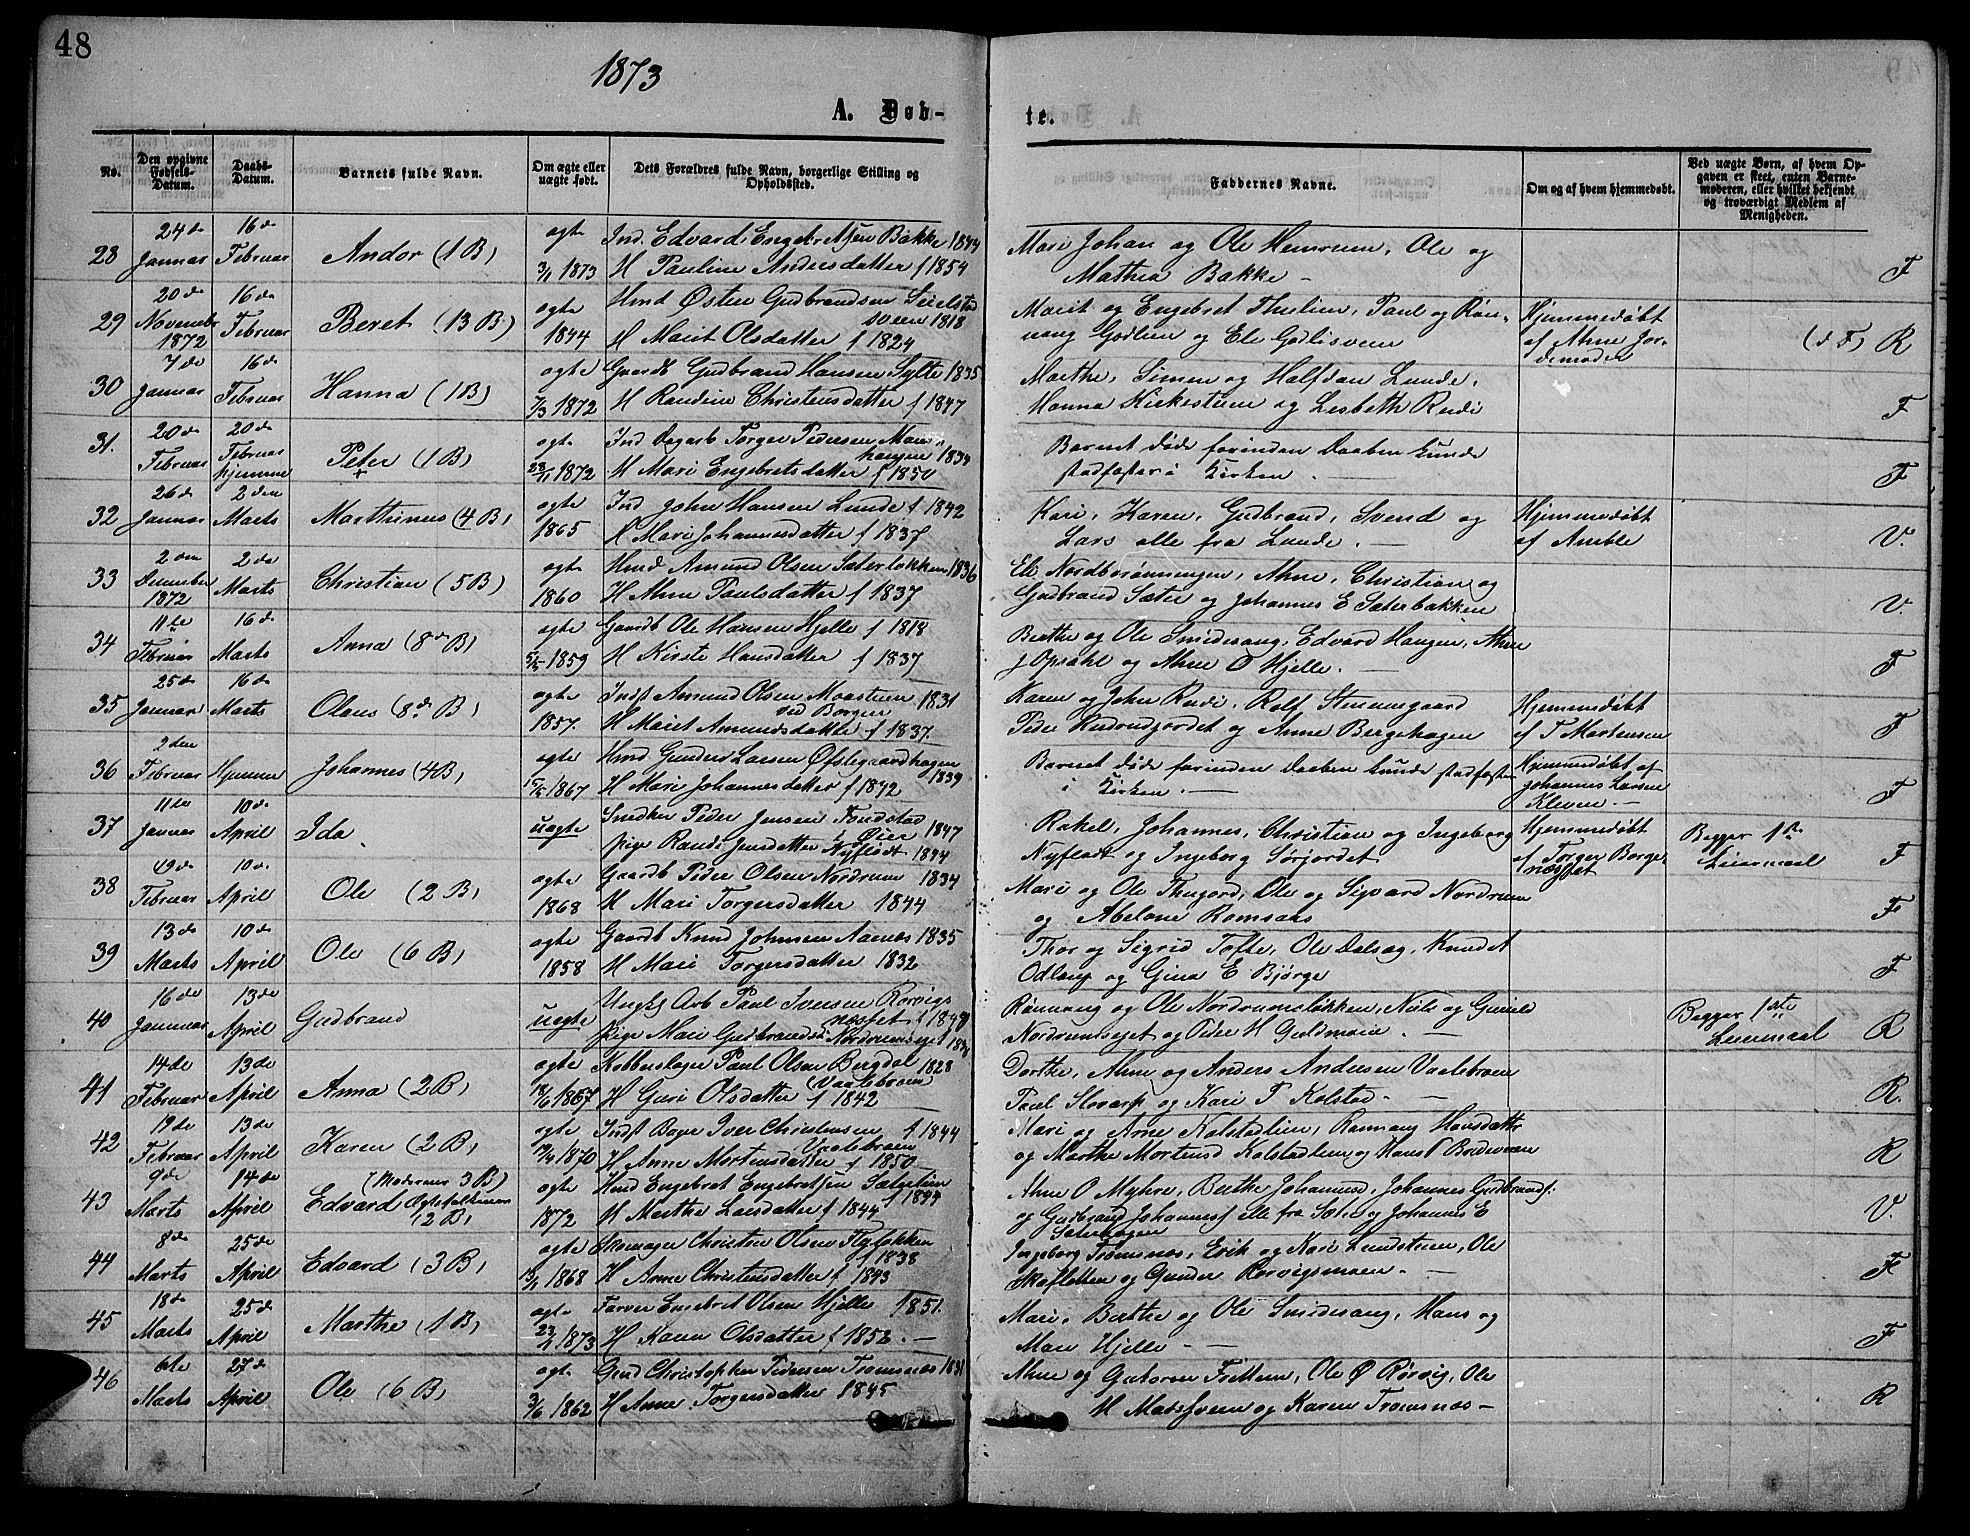 48
1873
A. Døb-
te.
No.
Den opgivne Fødsels-Datum.
Daabs-Datum.
Barnets fulde Navn.
Om ægte eller uægte født.
Dets Forældres fulde Navn, borgerlige Stilling og Opholdssted.
Faddernes Navne.
Om og af hvem hjemmedøbt.
Ved uægte Børn, af hvem Opgaven er skeet, enten Barnemoderen, eller hvilket bekjendt og troværdigt Medlem af Menigheden.
28 24de Januar 16de Februar Andor (1B) ægte 3/1 1873 Ind. Edvard Engebretsen Bakke 1844
H Pauline Andersdatter f 1854
Mari Johan og Ole Hemrum, Ole og
Mathea Bakke — F
29 20de November 1872 16de Februar Beret (13 B) ægte 1844 Hmd Østen Gudbrandsen Seielstad
sveen 1818
H Marit Olsdatter f 1824
Marit og Engebret Thulien, Paul og Røn-
nang Godlien og Ole Godlisveen
Hjemmedøbt
af Ahne Jor-
demoder
(d F) R
30 7de Januar 16de Februar Hanna (1B) ægte 7/3 1872 Gaardb Gudbrand Hansen Sylte 1835
H Randine Christensdatter f 1847
Marthe, Simen og Halfdan Lunde,
Hanna Kirkestuen og Lisbeth Rudi
F
31. 20de Februar 20de Februar hjemme Peter (1B) + ægte 23/11 1872 Ind Dagarb Torger Pedersen
haugen 1834
H Mari Engebretsdatter f 1850
Barnet døde forinden Daaben kunde
stadfæstes i Kirken. — F
32 26de Januar 2den Marts Matthinus (4 B) ægte 1865 Ind John Hansen Lunde f 1842
H Mari Johannesdatter f 1837
Kari, Karen, Gudbrand, Svend og
Lars alle fra Lunde. —
Hjemmedøbt
af Amble
V.
33 2den December 1872 2de Marts Christian (5 B) ægte 1860 Hmd Amund Olsen Sæterløkken 1836
H Ahne Paulsdatter f 1837
Eli Nordbrønningen, Ahne, Christian og
Gudbrand Sæter og Johannes E Sæterbakken
V.
34 11te Februar 16de Marts Anna (8de B) ægte 1859 Gaardb Ole Hansen Hjelle f 1818
H Kirste Hansdatter f 1837
Berthe og Ole Smidesang, Edvard Haugen, Ahne
J Opsahl og Ahne O Hjelle. — F
35 25de Januar 16de Marts Olaus (8de B) ægte 1857. Indst Amund Olsen Moastuen 1831
ved Borgen
H Marit Amundsdatter f 1837.
Karen og John Rudi, Rolf Stenumgaard
Peder og Anne Bergehagen
Hjemmedøbt
af T Martensen
F
36 2den Februar Hjemme Johannes (4B) ægte 1867 Hmd Gunder Larsen Øfstegaardhagen
1839
H Mari Johannesdatter f 1842
Barnet døde forinden Daaben kunde stadfæstes
i Kirken. —
Hjemmedøbt af
Johannes Larsen
Kleven. —
F
37 11te Januar 10de April Ida uægte Snedker Peder Jensen Fondstad
i Øier 1847
Pige Randi Jensdatter Nyflødt 1844
Rakel, Johannes, Christian og Ingeborg
Nyflødt og Ingeborg Sørjordet
Hjemmedøbt
af Torger Borge-
næsset
Begges 1te
Leiermaal
F
38 19de Februar 10de April Ole (2 B) ægte 1868 Gaardb Peder Olsen Nordrum 1834
H Mari Torgersdatter 1844
Mari og Ole Thujord, Ole og Sigvard Nordrum
og Abelone Ramsaas
F
39 13de Marts 10de April Ole (6 B) ægte 1858 Gaardb Knud Johnsen Aarnes 1835
H Mari Torgersdatter 1832
Thor og Sigrid Tofte, Ole Delsag, Knudt
Odlaup og Gina E Bjørge
F
40 16de Januar 13de April Gudbrand uægte Ungk Arb Paul Iversen Rørvigs
næsset f 1848
Pige Mari Gudbrandsd Nordrumseget
Rønnang og Ole Nordrumsløkken, Niels og Gunild
Nordrumseget og Peder H Guldmoen. —
Begges 1ste
Leiermaal
R
41 14de Februar 13de April Anna (2 B) ægte 1867 Kobberslager Paul Olsen Bergdal 1828
(Vaalebroen)
H Guri Olsdatter f 1842
Dorthe, Ahne og Anders Andersen Vaalebroen
Paul Slorarp og Kari P Kolstad. — R.
42 19de Februar 13de April Karen (2 B) ægte 1870 Indst Bager Iver Christensen f 1844
Vaalebroen
H Anne Mortensdatter f 1850
Mari og Arne Kolstadlien, Rannang Hansdatter
og Marthe Mortensd Kolstadlien og Hans Brideveen
R
43 9de Marts 14de April (Moderens 3 B)
Edvard Ægteskabets
(2 B) ægte 1872 Hmd Engebret Engebretsen Sæterlien
f 1844
H Marthe Larsdatter f 1844
Ahne O Myhre, Berthe Johannesd, Johannes Gudbrands:
og Gudbrand Johannesf alle fra Sæter og Johannes E
Sæterhagen
V.
44 8de Marts 25de April Edvard (3 B) ægte 1868 Skomager Christen Olsen Fløløkken
f 1838
H Anne Christensdatter f 1843
Ingeborg Tromsnæs, Erik og Kari Lundstuen, Ole
Skafletten og Gunder Rørvigsmoen. — F
45 18de Marts 25de April Marthe (1 B) ægte 1873 Farver Engebret Olsen Hjelle 1851.
H Karen Olsdatter f 1852. —
Mari, Berthe og Ole Smidesang, Hans og
Mari Hjelle. — F
46 6te Marts 27de April Ole (6 B) ægte 3/6 1862 Gmd Christopher Pedersen Tromsnæs 1831
H Anne Torgersdatter 1845
Ahne og Gutoren Frettem, Ole Ø Rørvig, Ole
H Matssveen og Karen Tromsnæs —
R